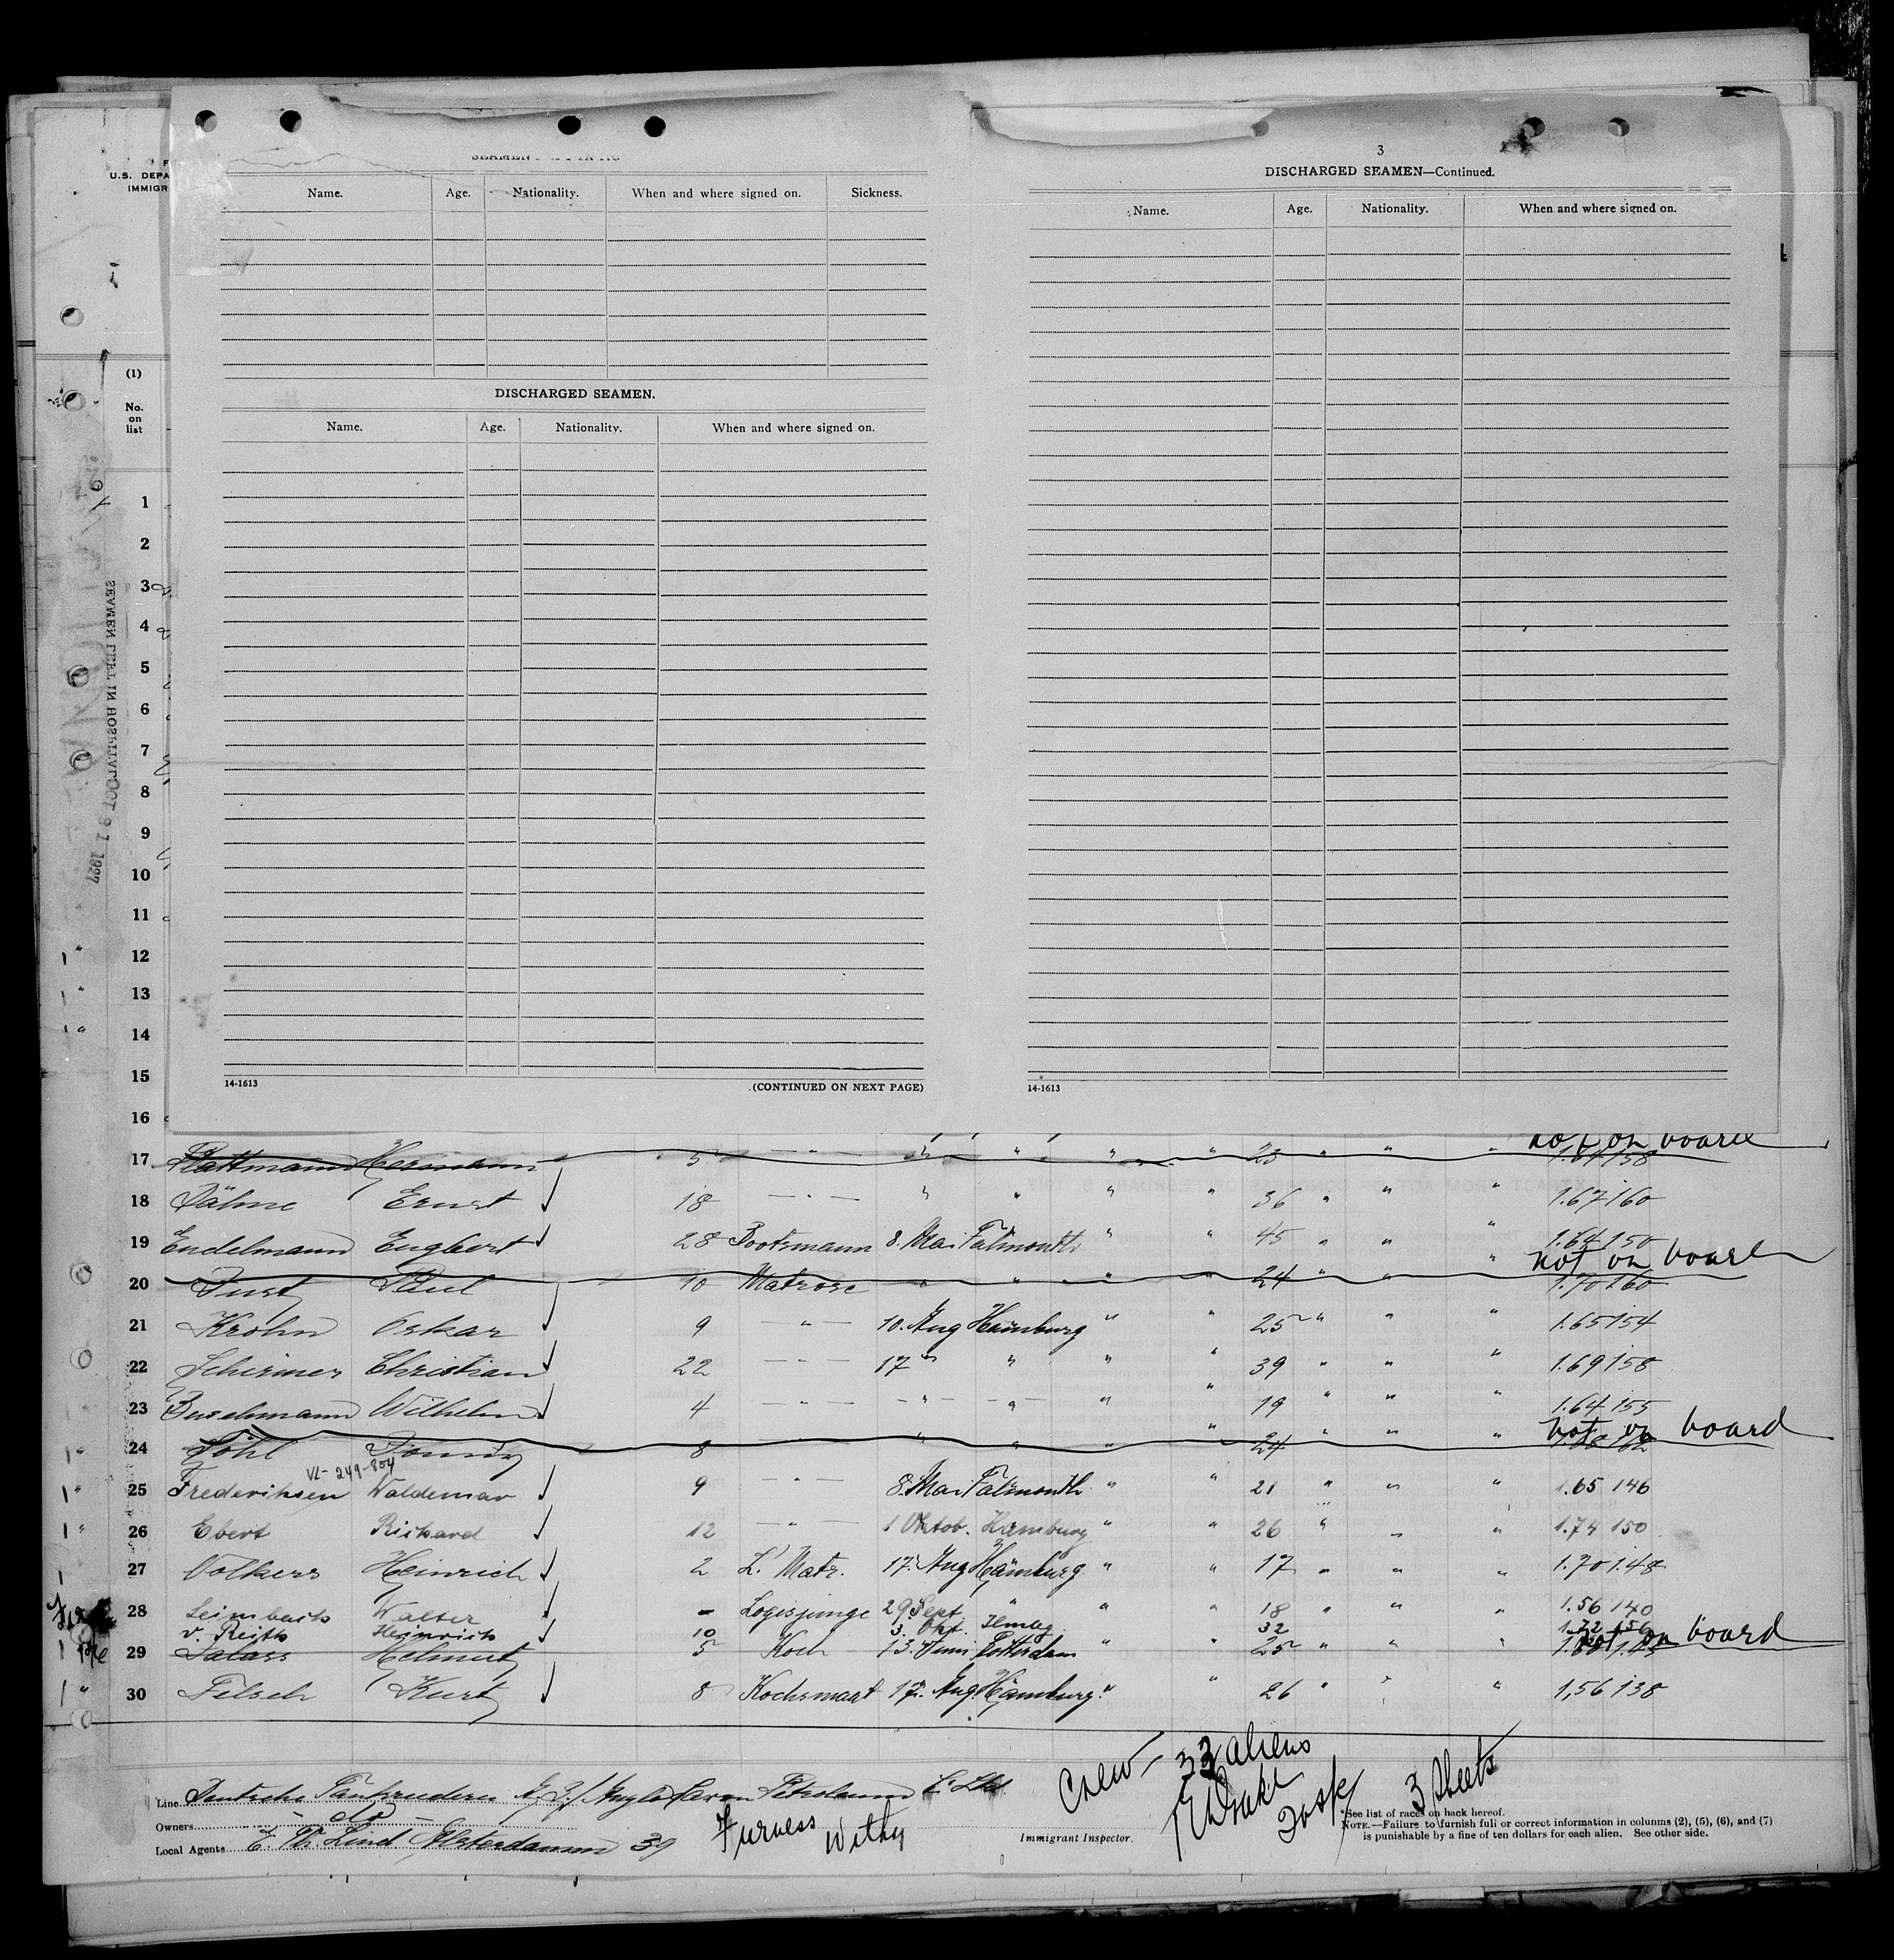 U.S. DEPA
IMMIGR
Name. Age. Nationality. When and where signed on. Sickness.
DISCHARGED SEAMEN.
Name. Age. Nationality. When and where signed on.
14-1613 (CONTINUED ON NEXT PAGE)
3
DISCHARGED SEAMEN—Continued.
Name. Age. Nationality. When and where signed on.
14-1613
(1)
No.
on
list
SEAMEN LEFT IN HOSPITAL OCT 1927
1
2
3
4
5
6
7
8
9
10
11
12
13
14
15
16
not on board
17 Plattmann Hermann 5 " " " " " 23 " " " 1.64 158
18 Dähne Ernst 18 " " " " " 36 " " " 1.67 160
19 Endelmann Engbert 28 Bootsmann 8. Mai Falmouth " " 45 " " " 1.64 150
not on board
20 Just Paul 10 Matrose " " " " 24 " " " 1.70 160
21 Krohn Oskar 9 " 10. Aug Hamburg " " 25 " " " 1.65 154
22 Schirmer Christian 22 " 17 " " " " 39 " " " 1.69 158
23 Buschmann Wilhelm 4 " " " " " 19 " " " 1.64 155
not on board
24 Föhl 8 " " " " 24 " " "
VL-249-804
25 Frederiksen Waldemar 9 " 8. Mai Falmouth " " 21 " " " 1.65 146
26 Ebert Richard 12 " 1 Oktob. Hamburg " " 26 " " " 1.74 150
27 Volkers Heinrich 2 L. Matr. 17. Aug Hamburg " " 17 " " " 1.70 148
28 Leimbach Walter - Logisjunge 29. Sept. " " " 18 " " " 1.56 140
v. Reith Heinrich 10 3. Okt. Hmbg 32 1.72 150
not on board
29 Salass Helmut 5 Koch 13. Juni Rotterdam " " 25 " " "
30 Felsch Kurt 8 Kochsmaat 17. Aug. Hamburg " " 26 " " " 1,56 138
Crew - 33 aliens
3 Sheets
Line Deutsche Anglo Saxon Petroleum C. Ltd
Owners - do -
Local Agents E. Th. Lind, Alsterdamm 39
Furness Withy
Immigrant Inspector.
See list of races on back hereof.
NOTE.—Failure to furnish full or correct information in columns (2), (5), (6), and (7)
is punishable by a fine of ten dollars for each alien. See other side.